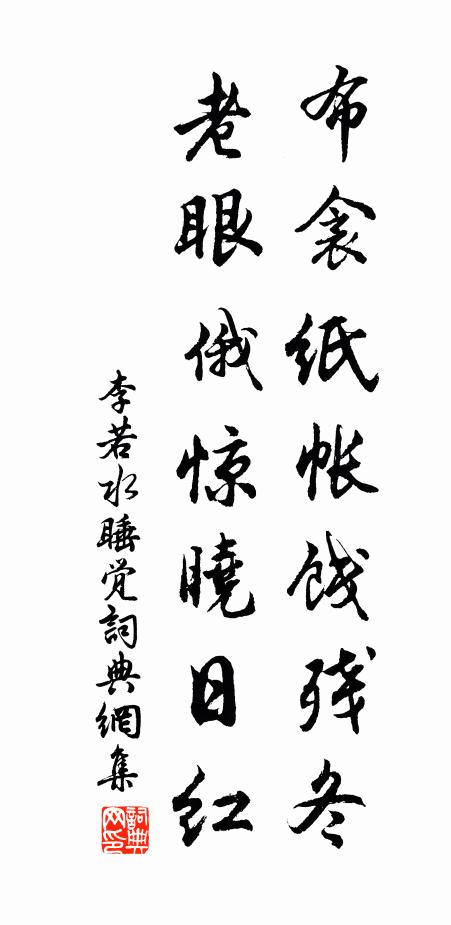 布衾纸帐饯残冬
老眼俄惊曉日红
李若水睡觉詞典網集
詞典
网印